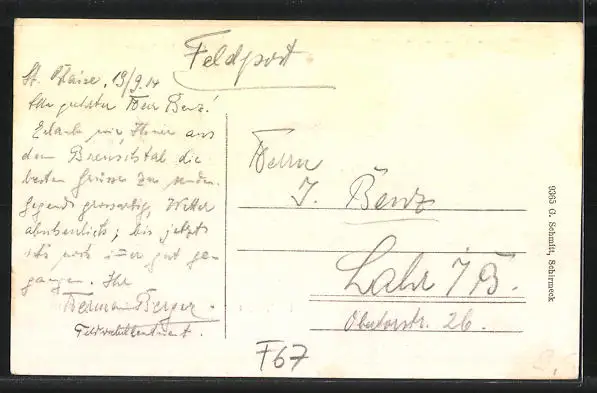 Feldpost
St. Blaise, 19/9.14
Sehr geehrter Herr Benz!
Erlaube mir Ihnen aus
dem Breuschtal die
besten Grüsse zu senden.
Gegend grossartig, Wetter
abscheulich; bis jetzt
ists noch immer gut ge-
gangen. Ihr
Hermann Berger.
Herrn
J. Benz
Lahr i/B.
Obertorstr. 26.
F67
9365 G. Schmitt, Schirmeck